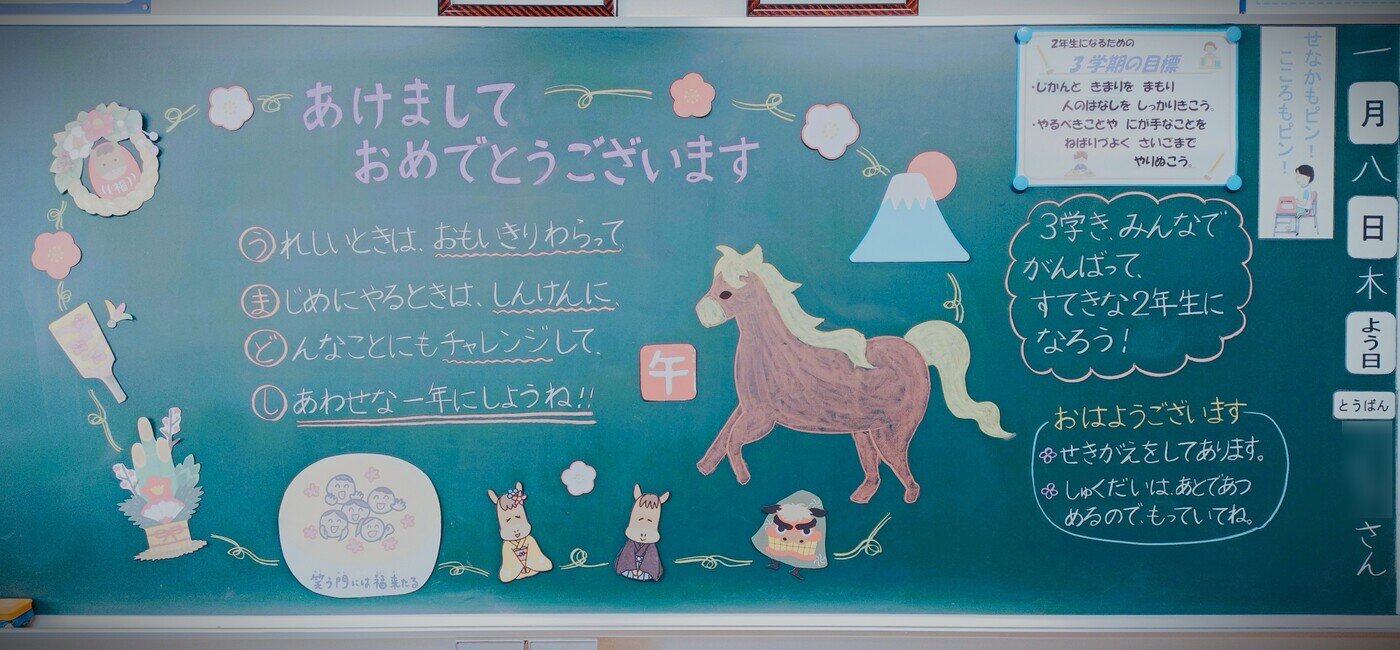 あけまして
おめでとうございます
うれしいときは、おもいきりわらって
まじめにやるときは、しんけんに、
どんなことにもチャレンジして、
しあわせな一年にしようね!!
午
福
笑う門には福来たる
2年生になるための
3学期の目標
・じかんと きまりを まもり
人のはなしを しっかりきこう。
・やるべきことや にが手なことを
ねばりづよく さいごまで
やりぬこう。
3学き、みんなで
がんばって、
すてきな2年生に
なろう!
おはようございます
せきがえをしてあります。
しゅくだいは、あとであつ
めるので、もっていてね。
せなかもピン!
こころもピン!
一月八日木よう日
とうばん
さん